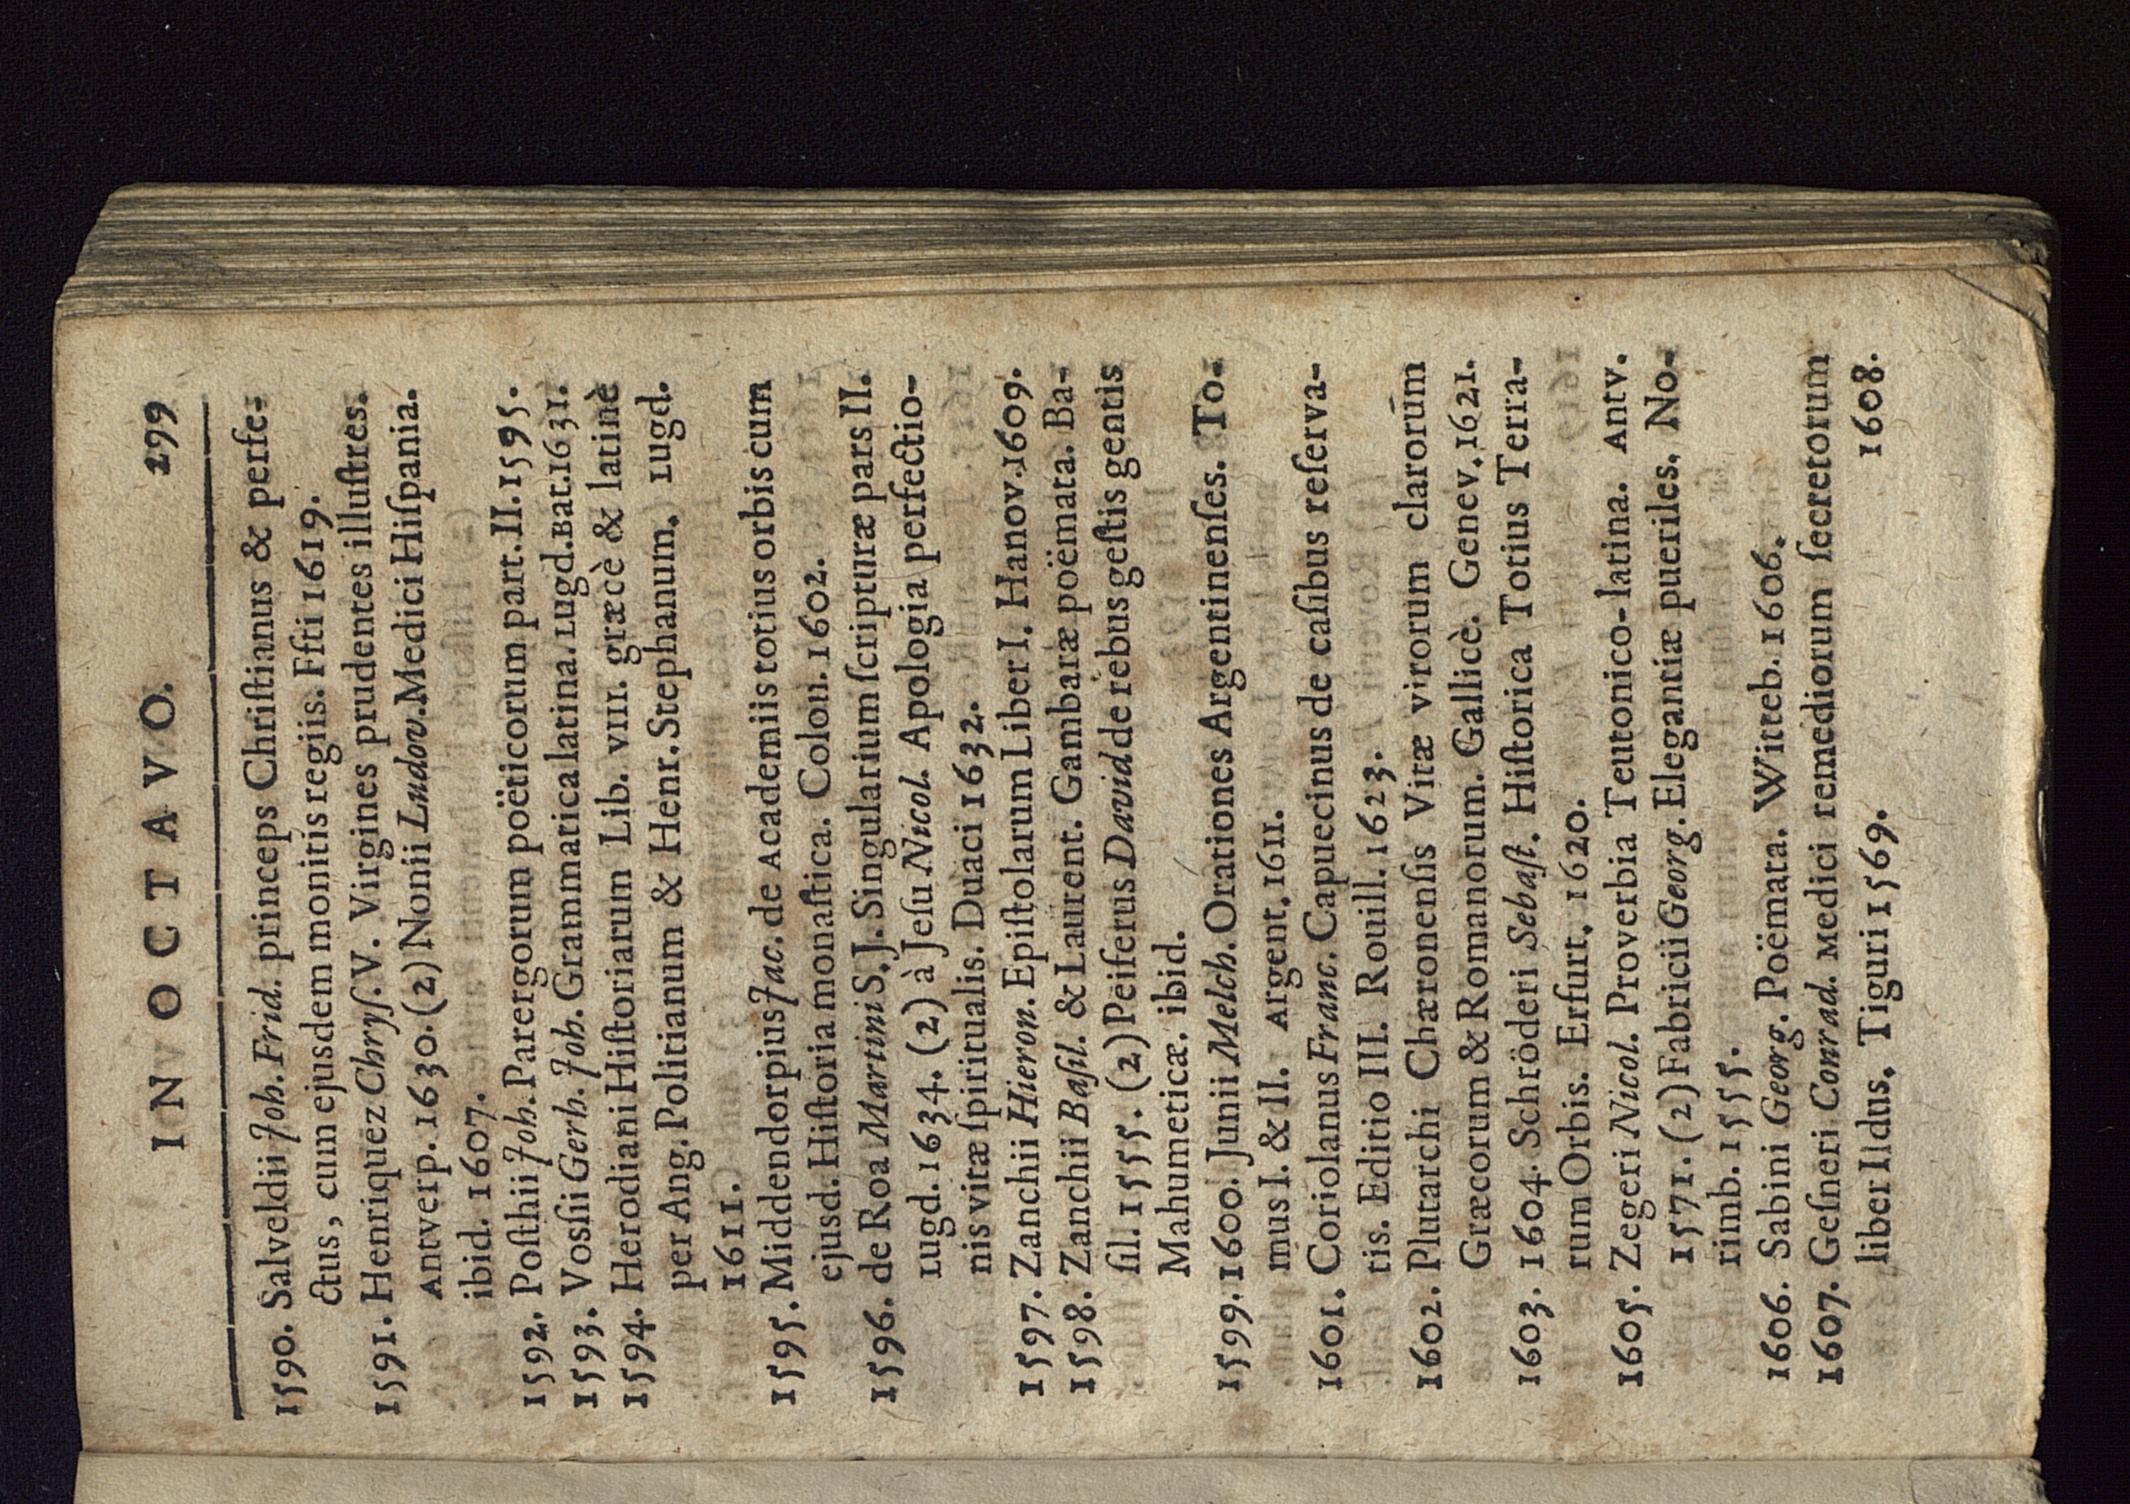 IN OCTAVO. 299
1590. Salveldii Joh. Frid. princeps Chriſtianus & perfe-
ctus, cum ejusdem monitis regiis. Ffti 1619.
1591. Henriquez Chryſ. V. Virgines prudentes illuſtres.
Antverp. 1630. (2) Nonii Ludov. Medici Hiſpania.
ibid. 1607.
1592. Poſthii Joh. Parergorum poëticorum part. II. 1595.
1593. Voſsii Gerh. Joh. Grammatica latina. Lugd. Bat. 1631.
1594. Herodiani Hiſtoriarum Lib. VIII. græcè & latinè
per Ang. Politianum & Henr. Stephanum. Lugd.
1611.
1595. Middendorpius Jac. de Academiis totius orbis cum
ejusd. Hiſtoria monaſtica. Colon. 1602.
1596. de Roa Martini S. J. Singularium ſcripturæ pars II.
Lugd. 1634. (2) à Jeſu Nicol. Apologia perfectio-
nis vitæ ſpiritualis. Duaci 1632.
1597. Zanchii Hieron. Epiſtolarum Liber I. Hanov. 1609.
1598. Zanchii Baſil. & Laurent. Gambaræ poëmata. Ba-
ſil. 1555. (2) Peiferus David de rebus geſtis gentis
Mahumeticæ. ibid.
1599. 1600. Junii Melch. Orationes Argentinenſes. To-
mus I. & II. Argent. 1611.
1601. Coriolanus Franc. Capuecinus de caſibus reſerva-
tis. Editio III. Rouill. 1623.
1602. Plutarchi Chæronenſis Vitæ virorum clarorum
Græcorum & Romanorum. Gallicè. Genev. 1621.
1603. 1604. Schröderi Sebaſt. Hiſtorica Totius Terra-
rum Orbis. Erfurt. 1620.
1605. Zegeri Nicol. Proverbia Teutonico-latina. Antv.
1571. (2) Fabricii Georg. Elegantiæ pueriles. No-
rimb. 1555.
1606. Sabini Georg. Poëmata. Witteb. 1606.
1607. Geſneri Conrad. Medici remediorum ſecretorum
liber IIdus. Tiguri 1569.
1608.